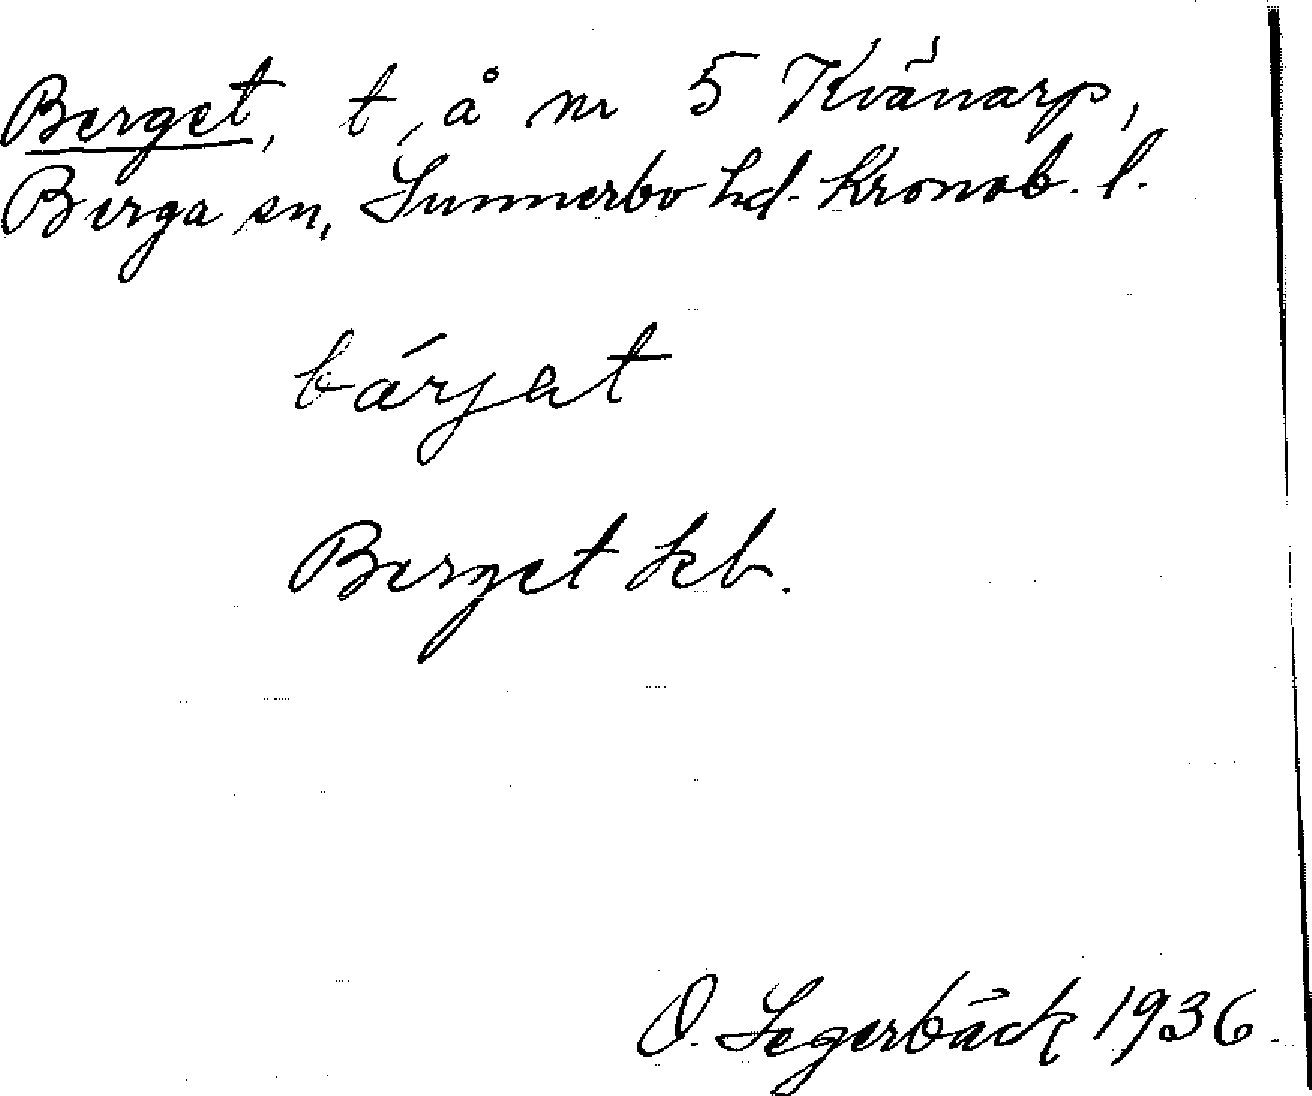 Berget, t, å nr 5 Kvänarp,
Berga sn, Sunnerbo hd. Kronob. l.
bárjat
Berget kb.
O. Segerbäck 1936.